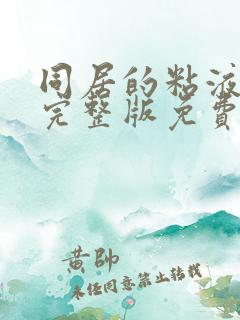 同居的粘液
完整版免费
黄帅
未经同意禁止转载